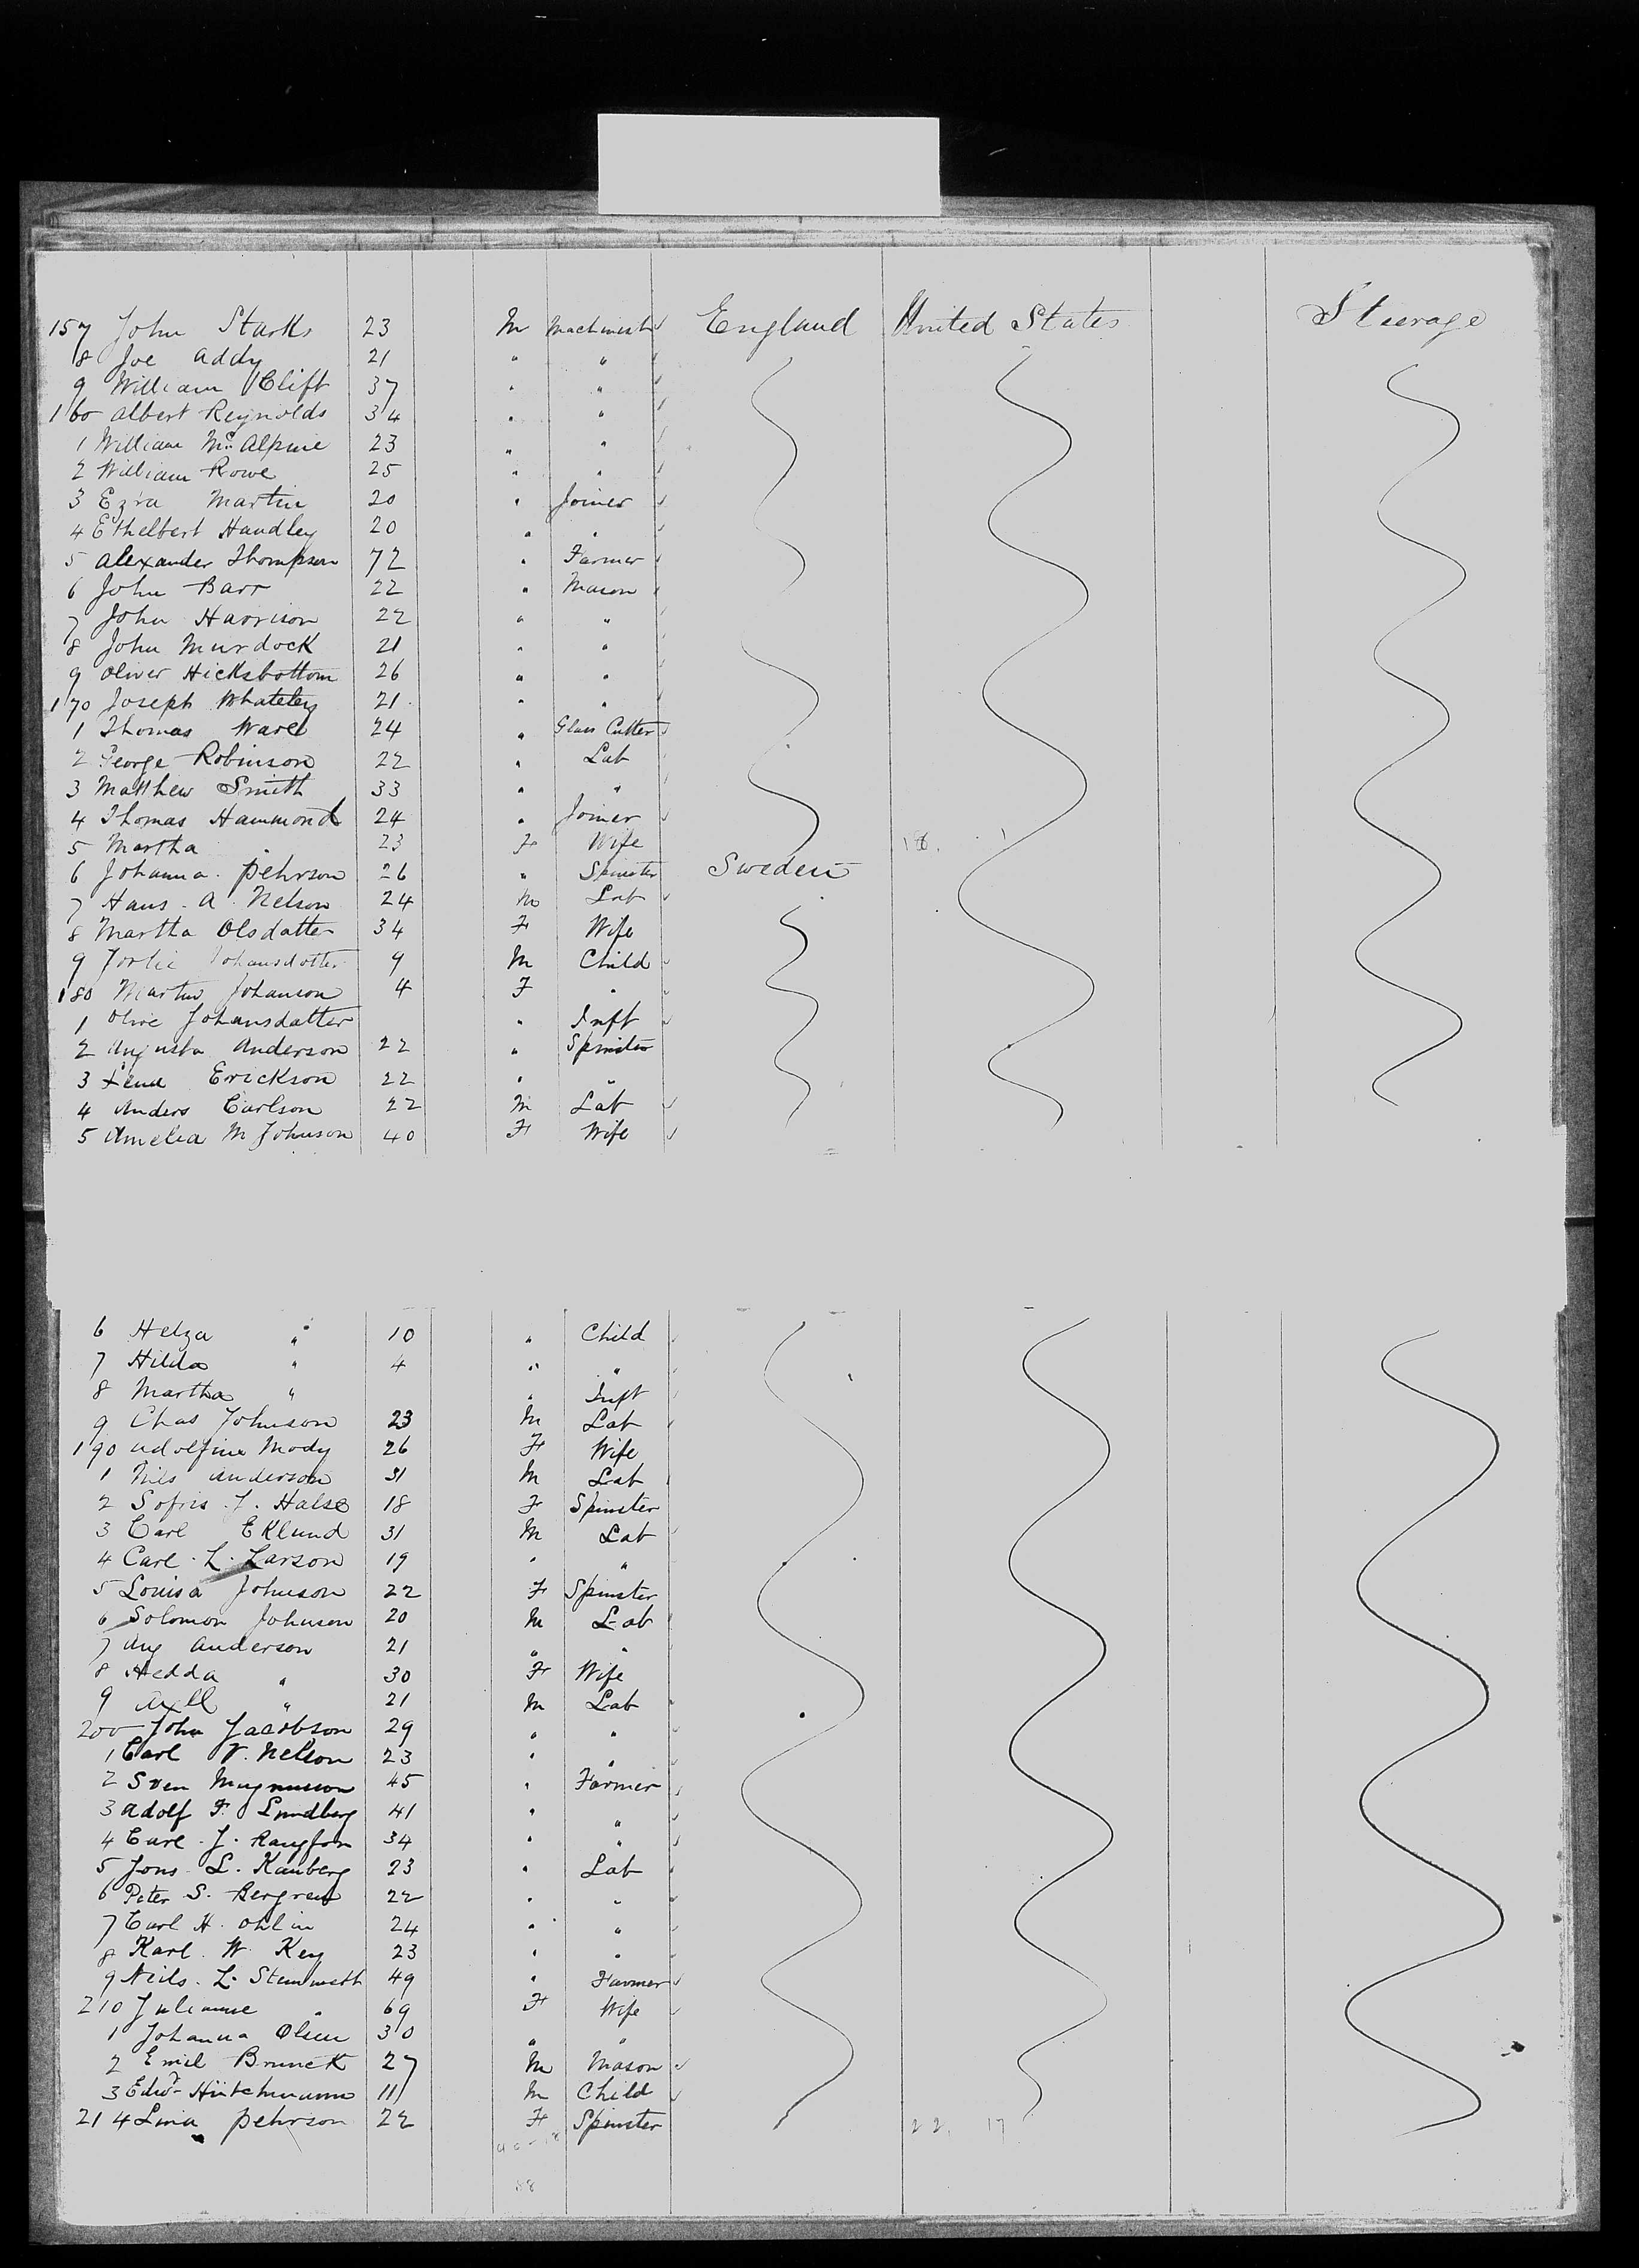 157 John Starks 23 M Machinist England United States Steerage
8 Joe Addy 21 " "
9 William Clift 37 " "
160 Albert Reynolds 34 " "
1 William Mc Alpine 23 " "
2 William Rowe 25 " "
3 Ezra Martin 20 " Joiner
4 Ethelbert Handley 20 " "
5 Alexander Thompson 72 " Farmer
6 John Barr 22 " Mason
7 John Harrison 22 " "
8 John Murdock 21 " "
9 Oliver Hicksbottom 26 " "
170 Joseph Whateley 21 " "
1 Thomas Ward 24 " Glass Cutter
2 George Robinson 22 " Lab
3 Matthew Smith 33 " "
4 Thomas Hammond 24 " Joiner
5 Martha " 23 F Wife
6 Johanna Pehrson 26 " Spinster Sweden
7 Hans A Nelson 24 M Lab
8 Martha Olsdatter 34 F Wife
9 Johansdotter 9 M Child
180 Martin Johanson 4 F "
1 Olive Johansdatter " Inft
2 Augusta Anderson 22 " Spinster
3 Lena Erickson 22 " "
4 Anders Carlson 22 M Lab
5 Amelia M Johnson 40 F Wife
6 Helga " 10 " Child
7 Hilda " 4 " "
8 Martha " " Inft
9 Chas Johnson 23 M Lab
190 Adolfine Mody 26 F Wife
1 Nils Anderson 31 M Lab
2 Sofris J. Halse 18 F Spinster
3 Carl Eklund 31 M Lab
4 Carl L. Larson 19 " "
5 Louisa Johnson 22 F Spinster
6 Solomon Johnson 20 M Lab
7 Aug Anderson 21 " "
8 Hedda " 30 F Wife
9 Axell " 21 M Lab
200 John Jacobson 29 " "
1 Carl V. Nelson 23 " "
2 Sven Magnusson 45 " Farmer
3 Adolf F. Lundberg 41 " "
4 Carl J. 34 " "
5 Jons L. Kanberg 23 " Lab
6 Peter S. Bergren 22 " "
7 Carl H. Ohlin 24 " "
8 Karl W. Key 23 " "
9 Neils L. 49 " Farmer
210 Julianne " 69 F Wife
1 Johanna Olsen 30 " "
2 Emil Brunek 27 M Mason
3 Edwd Hutchmann 11 M Child
214 Lina Pehrson 22 F Spinster 22. 17